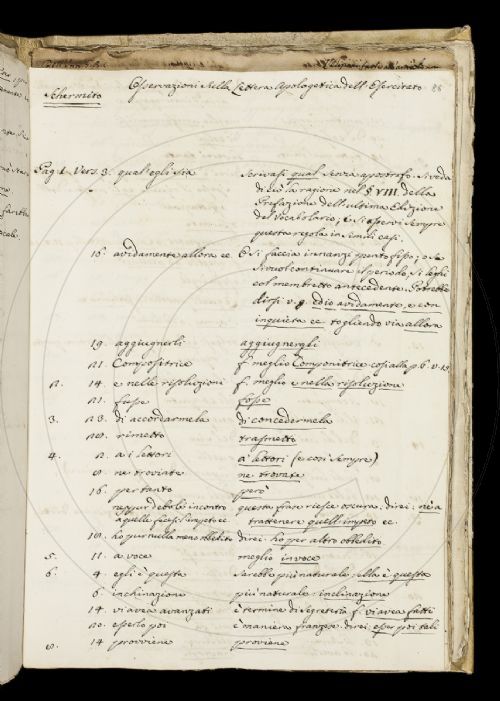 Osservazioni sulla Lettera Apologetica dell'Esercitato 86
Schermito
Pag 1. Vers. 3. qual'egli sia Scrivasi qual senza apostrofo. Si veda
di ciò la ragione nel § VIII della
Prefazione dell'ultima Edizione
del Vocabolario; e si osservi sempre
questa regola in simili casi.
16. avidamente allora ec O si faccia innanzi punto fisso; o se
si vuol continuare il periodo si leghi
col membretto antecedente. Potrebbe
dirsi v. g. ed io avidamente, e con
inquieta ec togliendo via allora
19. aggiugnerli aggiugnergli
21. Compositrice f. meglio Componitrice così alla p. 6 v. 13
2. 14. e nelle risoluzioni f. meglio e nella risoluzione
21. fusse fosse
3. 23. di accordarmela di concedermela
28. rimetto trasmetto
4. 2. a i lettori a' lettori (e così sempre)
8. ne troviate ne trovate
16. per tanto però
ne per debole incontro questa frase riesce oscura. direi: nè a
a quelle feci s'impeto ec. trattenere quell'impeto ec.
10. ho pur nulla meno obbedito direi: ho per altro obbedito
5. 11. a voce meglio in voce
6. 4. egli è questa sarebbe più naturale ella è questa
6. inchinazione più naturale inclinazione
14. vi avea avanzati è termine di Segreteria f. vi avea fatti
20. esserlo poi è maniera franzese. direi: esser poi tali
8. 14 provviene proviene